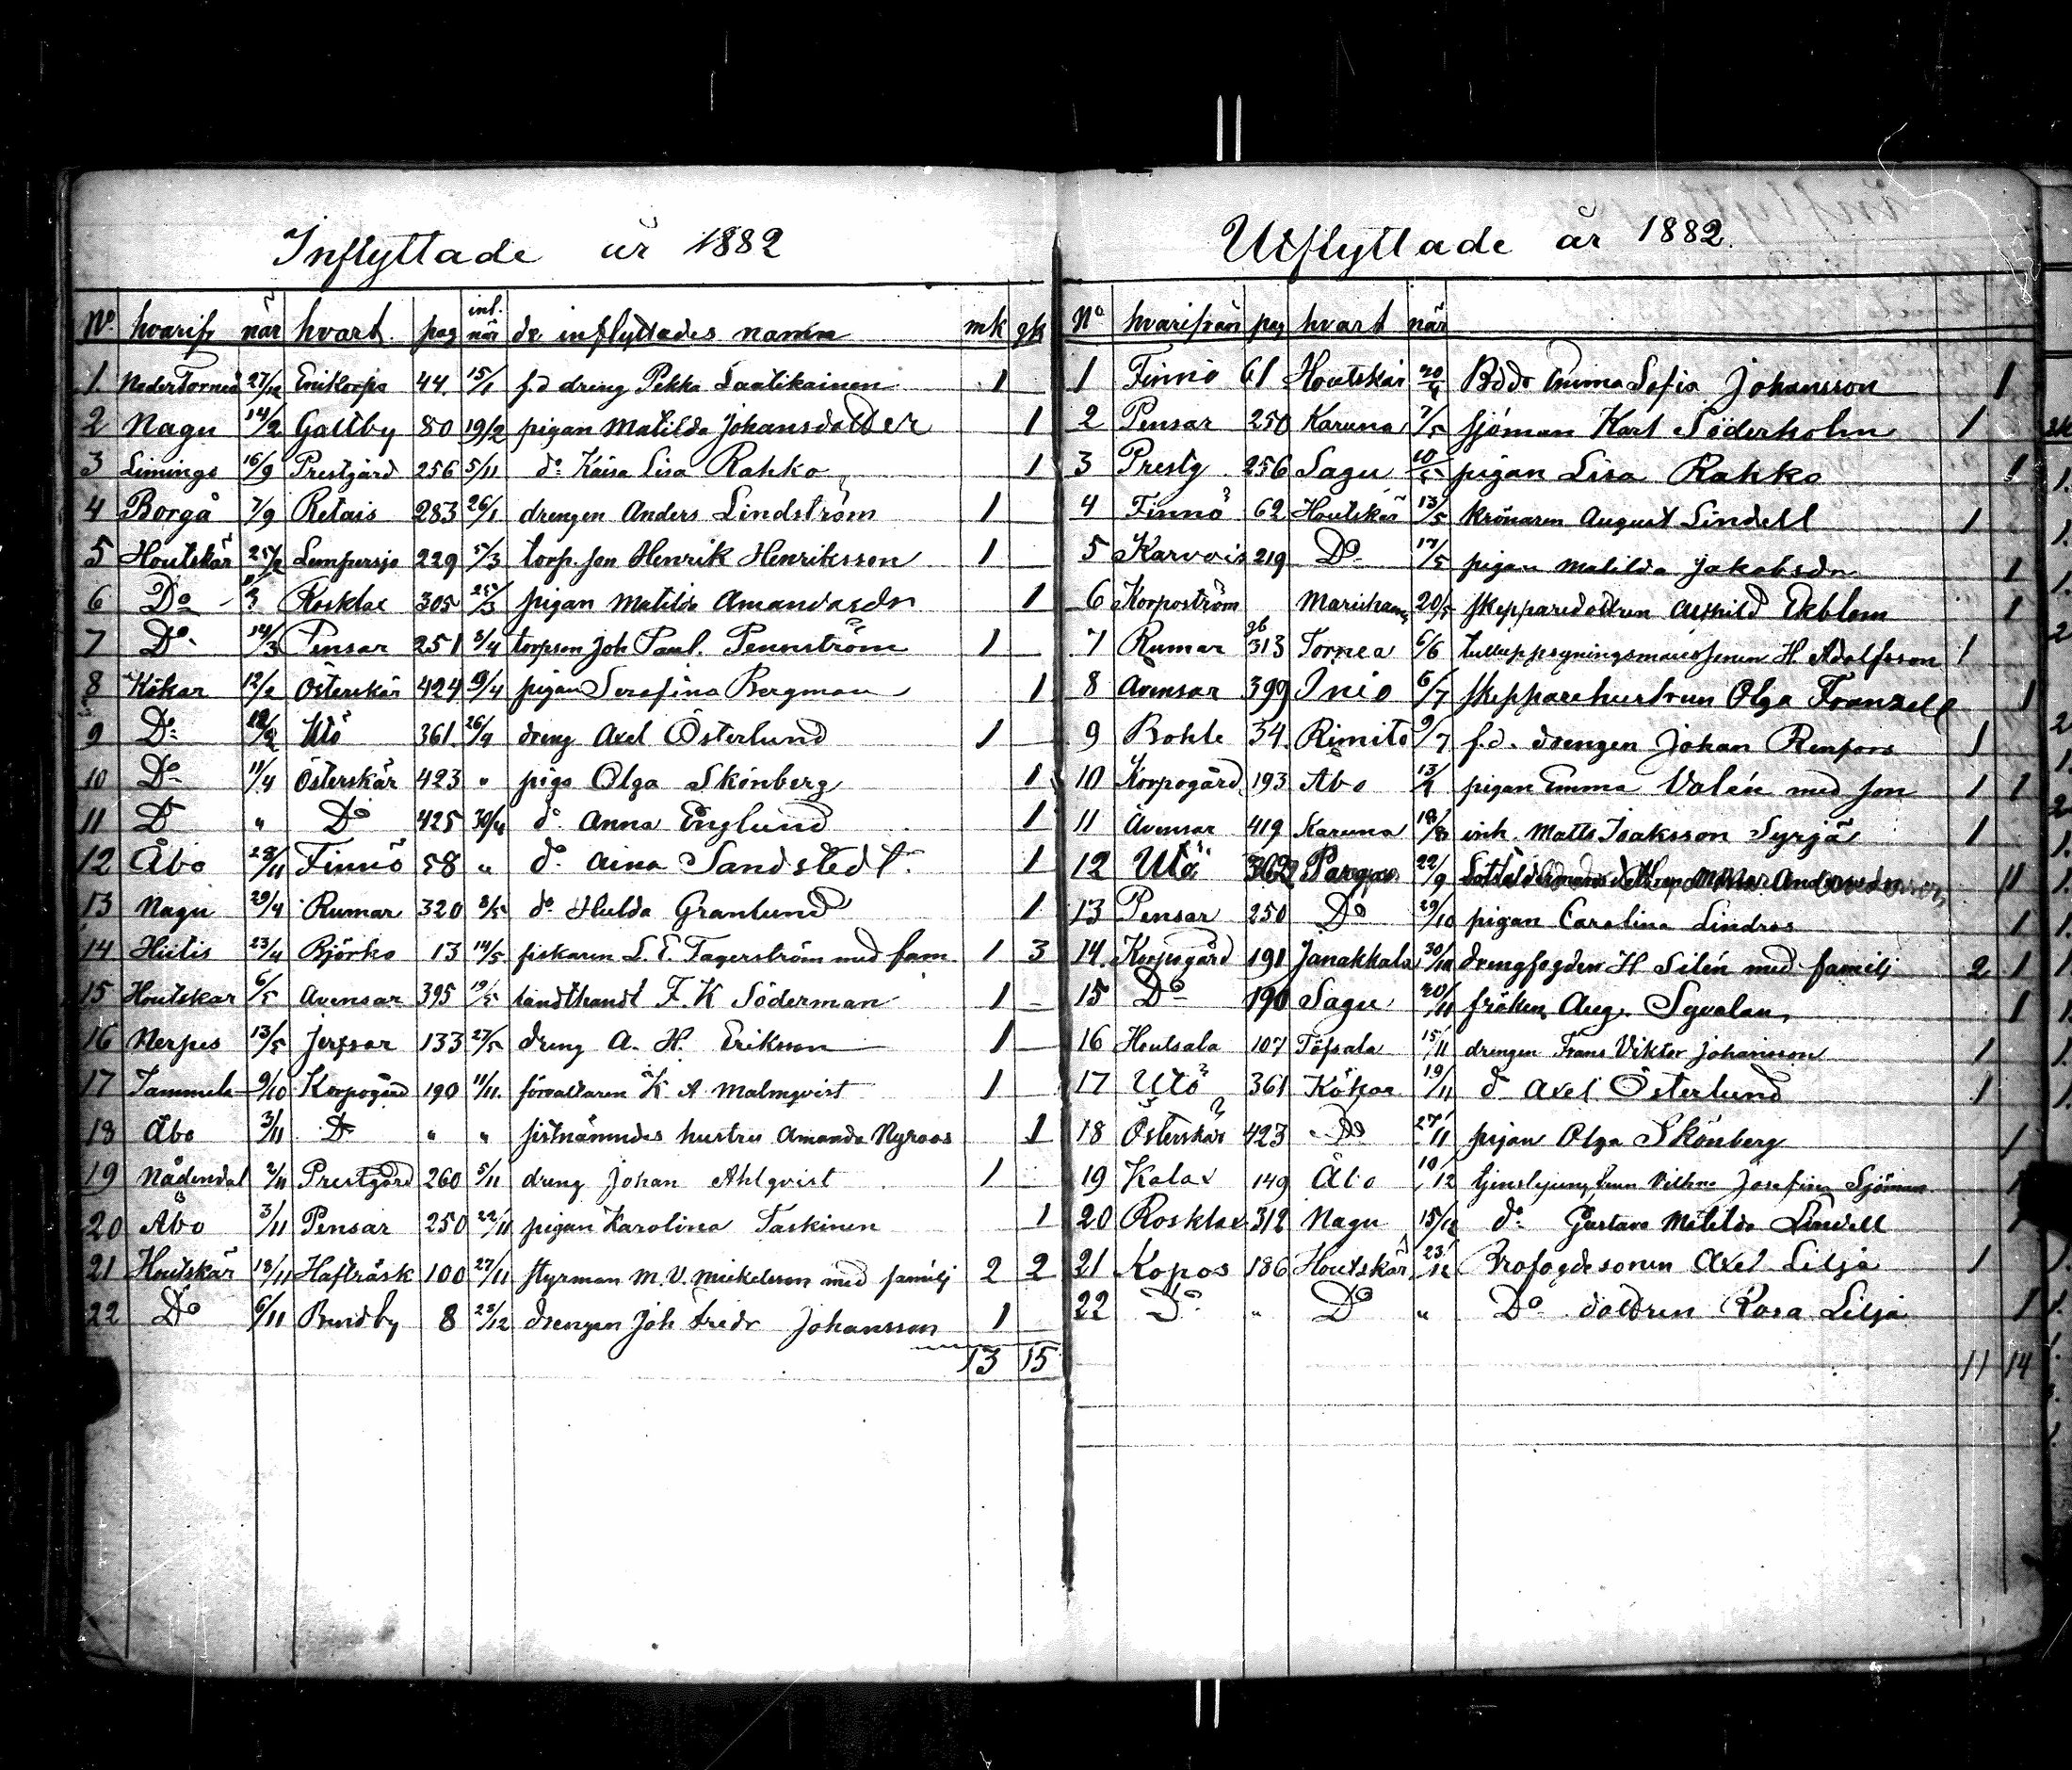 Inflyttade år 1882
No hvarifr når hvart pag inl. når de inflyttades namn mk qk
1 NederTorneå 27/12 Enikorpo 44. 15/1 f.d dreng Pekka Laatikainen 1
2 Nagu 14/2 Galtby 80 19/2 pigan Matilda Johansdotter 1
3 Limingo 16/9 Prestgård 256 5/11 do Kaisa Lisa Rahko 1
4 Borgå 7/9 Retais 283 26/1 drengen Anders Lindström 1
5 Houtskär 25/2 Lempersjö 229 5/3 torp. son Henrik Henriksson 1
6 Do Rosklax 305 25/3 pigan Matilda Amandasdr 1
7 Do 14/3 Pensar 251 3/4 torpson Joh Paul. Pennström 1
8 Kökar 12/2 Österskär 424 9/4 pigan Serafina Bergman 1
9 Do Utö 361. 26/4 dreng Axel Österlund 1
10 Do 11/4 Österskär 423 " piga Olga Skönberg 1
11 D " Do 425 30/4 do Anna Englund 1
12 Åbo 28/11 Finnö 58 " do Aina Sandstedt. 1
13 Nagu 29/4 Rumar 320 8/5 do Hulda Granlund 1
14 Hiitis 23/4 Björkö 13 14/5. fiskaren L. E. Fagerström med fam 1 3
15 Houtskar 6/5 Avensar 395 19/5 landthandl F. K Söderman 1
16 Nerpes 13/5 Jerfsar 133 27/5 dreng A. H. Eriksson 1
17 Tammela 9/10 Korpogård 190 11/11. förvaltaren K A Malmqvist 1
18 Åbo 3/11 Do " " sistnämndes hustru Amanda Nyroos 1
19 Nådendal 2/11 Prestgård 260 5/11 dreng Johan Ahlqvist 1
20 Åbo 3/11 Pensar 250 22/11 pigan Karolina Taskinen 1
21 Houtskär 18/11 Hafträsk 100 27/11 styrman M. V. Mickelsson med familj 2 2
22 Do 6/11 Brudby 8 28/12 drengen Joh Fredr Johansson 1
13 15
Utflyttade år 1882.
No hvarifrån pag hvart når
1 Finnö 61 Houtskär 20/4 Bddr Emma Sofia Johansson 1
2 Pensar 250 Karuna 7/5 sjöman Karl Söderholm 1
3 Prestg 256 Sagu 10/5 pigan Lisa Rahko 1
4 Finnö 62 Houtskär 13/5 krönaren August Lindell 1
5 Karvois 219 Do 17/5 pigan Matilda Jakobsdr 1
6 Korpoström Mariehamn 20/5 skepparedottren Ekblom 1
7 Rumar 313 Torneå 6/6 H. Adolfsson 1
8 Avensar 399 Iniö 6/7 skepparehustrun Olga Franzell 1
9 Bohle 34. Rimito 9/7 f.d. drengen Johan Renfors 1
10 Korpogård 193 Åbo 13/ pigan Emma Valén med son 1 1
11 Avensar 419 Karuna 18/8 inh. Matts Isaksson Syrjä 1
12 Utö 362 Pargas 22/9 1
13 Pensar 250 Do 29/10 pigan Carolina Lindros 1
14. Korpogård 191 Janakkala 30/10 drengfogden H Silén med familj 2 1
15 Do 190 Sagu 20/11 fröken Aug. 1
16 Houtsala 107 Töfsala 15/11 drengen Frans Viktor Johansson 1
17 Utö 361 Kökar 19/11 d Axel Österlund 1
18 Österskär 423 Do 27/11 pigan Olga Skönberg 1
19 Kalax 149 Åbo 10/12 Josefina Sjöman 1
20 Rosklax 312 Nagu 15/12 do Gustava Matilda Lindell 1
21 Kopos 186 Houtskär 23/12 Brofogdesonen Axel Lilja 1
22 Do " Do " Do dottren Rosa Lilja 1
11 14